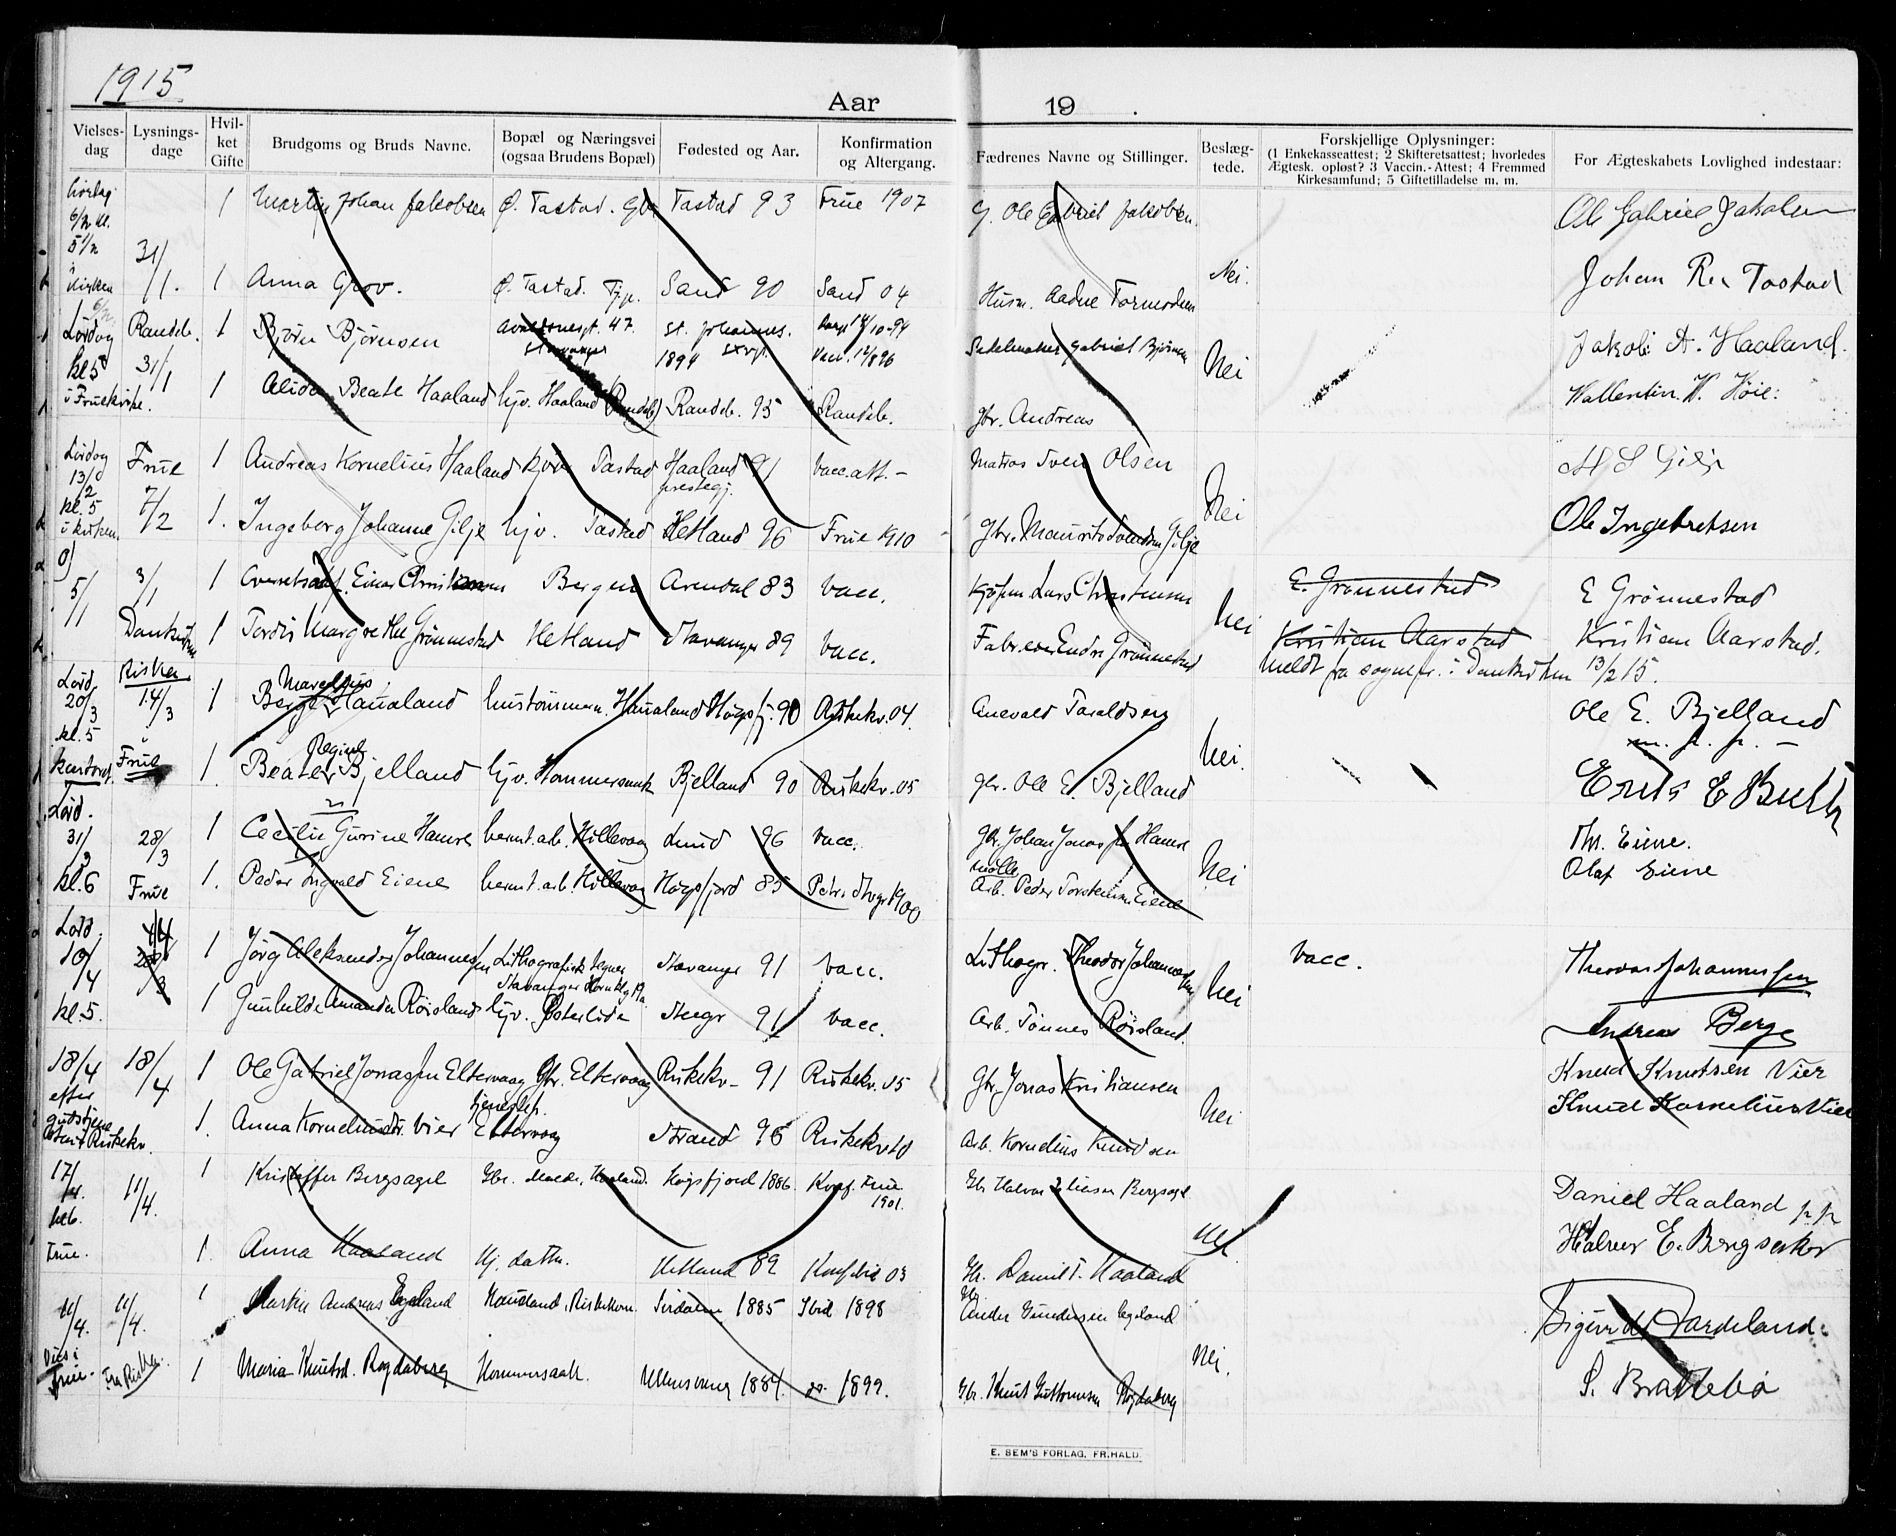 1915
Aar 19
Vielses-dag | Lysnings-dage | Hvil-ket Gifte | Brudgoms og Bruds Navne. | Bopæl og Næringsvei (ogsaa Brudens Bopæl) | Fødested og Aar. | Konfirmation og Altergang. | Fædrenes Navne og Stillinger. | Beslæg-tede. | Forskjellige Oplysninger: (1 Enkekasseattest; 2 Skifteretsattest; hvorledes Ægtesk. opløst? 3 Vaccin.-Attest; 4 Fremmed Kirkesamfund; 5 Giftetilladelse m. m. | For Ægteskabets Lovlighed indestaar:
6/2 kl. 5 1/2 i kirken | 31/1. | 1 | Martin Johan Jakobsen | Ø. Tastad. Gbr | Tastad 93 | Frue 1907 | G. Ole Gabriel Jakobsen. | Ole Gabriel Jakobsen
1 | Anna Grov. | Ø. Tastad. Tj. | Sand 90 | Sand 04 | Husm. Aadne Tormodsen | Nei. | Johan R. Tastad
6/2 Lørdag kl 5 i Fruekirke. | Randeb. 31/1 | 1 | Bjørn Bjørnsen | 47. Stavanger | St. Johannes. Stvgr. 1894 | Vacc. | Gabriel Bjørnsen | Nei | Jakob A. Haaland.
1 | Alida Beate Haaland | hjv. Haaland (Randeb) | Randeb. 95 | Randeb. | gbr. Andreas | Vallentin V. Høie:
Lørdag 13/2 kl. 5 i kirken. | Frue 7/2 | 1 | Andreas Kornelius Haaland | Tastad | Haaland prestegj. 91 | Vacc.att. - | Matros Sven Olsen | Nei | M S Gilje
1. | Ingeborg Johanne Gilje | hjv. Tastad | Hetland 96 | Frue 1910 | Gbr. Maurits Gilje | Ole Ingebretsen
5/1 | 3/1 | 1 | Einar Christensen | Bergen | Arendal 83 | Vacc. | Lars Christensen | Nei | E. Grønnestad | E Grønnestad
1 | Tordis Margrethe Grønnestad | Hetland | Stavanger 89 | Vacc. | Endre Grønnestad | Kristian Aarstad | Kristian Aarstad.
Meldt fra sognepr. i Domkirken 13/2 15.
Lørd. 20/3 kl. 5 kontoret. | Riska 14/3 | 1 | Berge Marselius Haualand | Haualand | Høgsfj. 90 | Riskekv. 04. | Anevald Taraldsen | Nei. | Ole E. Bjelland m. p. p. -
Frue | 1. | Beate Regine Bjelland | hjv. Hommersank | Bjelland 90 | Riskekv. 05 | gbr. Ole E. Bjelland
Lørd. 31/3 kl. 6 | 28/3 Frue | 1 | Cecilie Gurine Hamre | hermt.arb. Hillevaag | Lund 96 | Vacc. | Gbr. Johan Hamre | Nei | Th. Eiene.
1. | Peder Ingvald Eiene | hermt.arb. Hillevaag | Høgsfjord 85 | Petri Stvgr 1900 | Arb. Peder Torstensen Eiene | Olaf Eiene
Lørd. 10/4 kl. 5. | 4/4 | 1 | Jørg Aleksander Johannessen | Lithografisk tegner Stavanger | Stavanger 91 | Vacc. | Lithogr. Theodor Johannessen | Nei | Vacc. | Theodor Johannessen
1 | Gunhilde Amanda Røisland | hjv. Østerlide | Stvgr 91 | Vacc. | Arb. Tønnes Røisland. | Andreas Berge
18/4 efter gudstjenesten i Riskekv. | 18/4 | 1 | Ole Gabriel Jonassen Eltervaag | Gbr. Eltervaag | Riskekv. 91 | Riskekv. 05 | Gbr. Jonas Kristiansen | Nei | Knud Knutsen Vier
1. | Anna Korneliusdtr. Vier | tjenestep. Eltervaag | Strand 96 | Riskekv. 10 | Arb. Kornelius Knudsen | Knud Kornelius Vier
17/4. kl 6. Frue. | 11/4. | 1 | Kristoffer Bergsagel | Gbr. Haaland. | Høgsfjord 1886. | Konf. Frue 1901. | Gbr Halvor Eliasen Bergsagel | Nei | Daniel Haaland p. p
1. | Anna Haaland | Hj. datter | Hetland 89 | Konf. 03 | Gbr. Daniel T. Haaland | Halvor E. Bergsaker
11/4. Viet i Frue. | 11/4. | 1 | Martin Andreas Egeland | Haualand. Riskekv. | Sirdalen 1885 | Ibid 1898 | Gundersen Egeland | Nei. | Sigurd Jardeland.
Fra Riska. | 1 | Maria Knutsd. Rogdaberg | Hommersaak. | Ullensvang 1884. | do. 1899. | Gbr. Knut Guttormsen Rogdaberg | S. Brattebø
E. SEM'S FORLAG. FR.HALD.